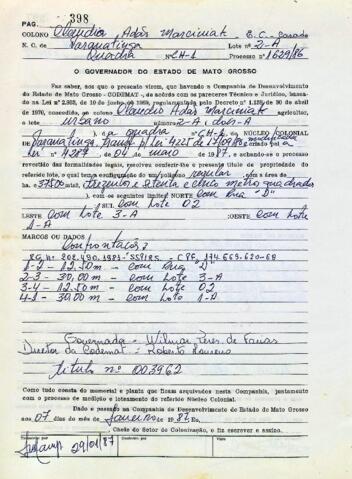 PAG. 398
COLONO Claudio Adão Marciniak E.C. Casado
N. C. de Paranatinga Lote nº 2-A
Quadra CH-1 Processo nº 1629/86
O GOVERNADOR DO ESTADO DE MATO GROSSO
Faz saber, aos que o presente virem, que havendo a Companhia de Desenvolvimento
do Estado de Mato Grosso - CODEMAT -, de acordo com os pareceres Técnico e Jurídico, baseado
na Lei nº de 10 de junho de regulamentada pelo Decreto nº de 30 de abril
de 1970, concedido, por este meio a Claudio Adão Marciniak agricultor,
o lote urbano nº 2-A
a quadra nº CH-1 do NÚCLEO COLONIAL
de Paranatinga, criado pela
Lei nº de 04 de maio de 1987, e achando-se o processo
revestido das formalidades legais, resolveu conferir-lhe o presente título de propriedade do
referido lote, o qual tem a configuração de um polígono regular com a área de
ha. 375,00 mts. trezentos e setenta e cinco metros quadrados
com os seguintes limites: NORTE com Rua "D"
SUL com Lote 02
LESTE com Lote 3-A OESTE com Lote
1-A
MARCOS OU DADOS
Confrontação:
1-2 - 12.50m - com Rua "D"
2-3 - 30,00m - com Lote 3-A
3-4 - 12.50m - com Lote 02
4-1 - 30,00m - com Lote 1-A
Governador - Wilmar Peres de Farias
Diretor da Codemat - Roberto
Título nº 003962
Como tudo consta do memorial e planta que ficam arquivados nesta Companhia, juntamente
com o processo de medição e loteamento do referido Núcleo Colonial.
Dado e passado na Companhia de Desenvolvimento do Estado de Mato Grosso
aos 07 dias do mês de Janeiro de 1987. Eu,
, Chefe do Setor de Colonização, o fiz escrever e assino.
29/01/87